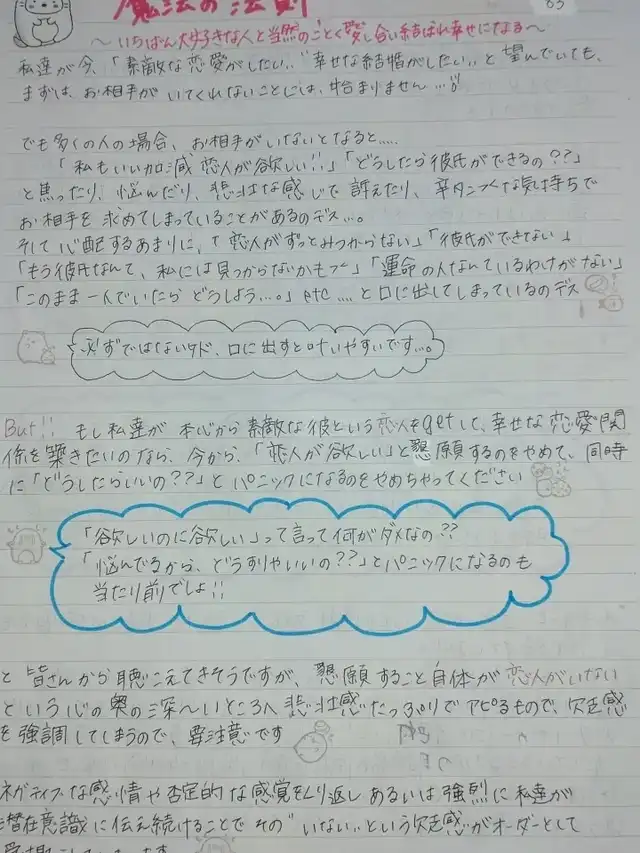 魔法の法則
53
～いちばん大好きな人と当然のごとく愛し合い結ばれ幸せになる～
私達が今、「素敵な恋愛がしたい‥"幸せな結婚がしたい"と望んでいても、
まずは、お相手がいてくれないことには、始まりません…
でも多くの人の場合、お相手がいないとなると‥‥
「私もいい加減恋人が欲しい!!」「どうしたら彼氏ができるの??」
と焦ったり、悩んだり、悲壮な感じで訴えたり、な気持ちで
お相手を求めてしまっていることがあるのデス…。
そして心配するあまりに、「恋人がずっとみつからない」「彼氏ができない」
「もう彼氏なんて、私には見つからないかもつ~」「運命の人なんているわけがない」
「このまま一人でいたらどうしよう…。」etc‥‥と口に出してしまっているのデス
必ずではないケド、口に出すと叶いやすいです…。
But!! もし私達が本心から素敵な彼という恋人をgetして、幸せな恋愛関
係を築きたいのなら、今から、「恋人が欲しい」と懇願するのをやめて、同時
に「どうしたらいいの??」とパニックになるのをやめちゃってください
「欲しいのに欲しい」って言って何がダメなの??
「悩んでるから、どうすりゃいいの??」とパニックになるのも
当たり前でしょ!!
と皆さんから聴こえてきそうですが、懇願すること自体が恋人がいない
という心の奥の深～いところへ悲壮感たっぷりでアピるもので、欠乏感
を強調してしまうので、要注意です
ネガティブな感情や否定的な感覚をくり返しあるいは強烈に私達が
潜在意識に伝え続けることでその"いない"という欠乏感がオーダーとして